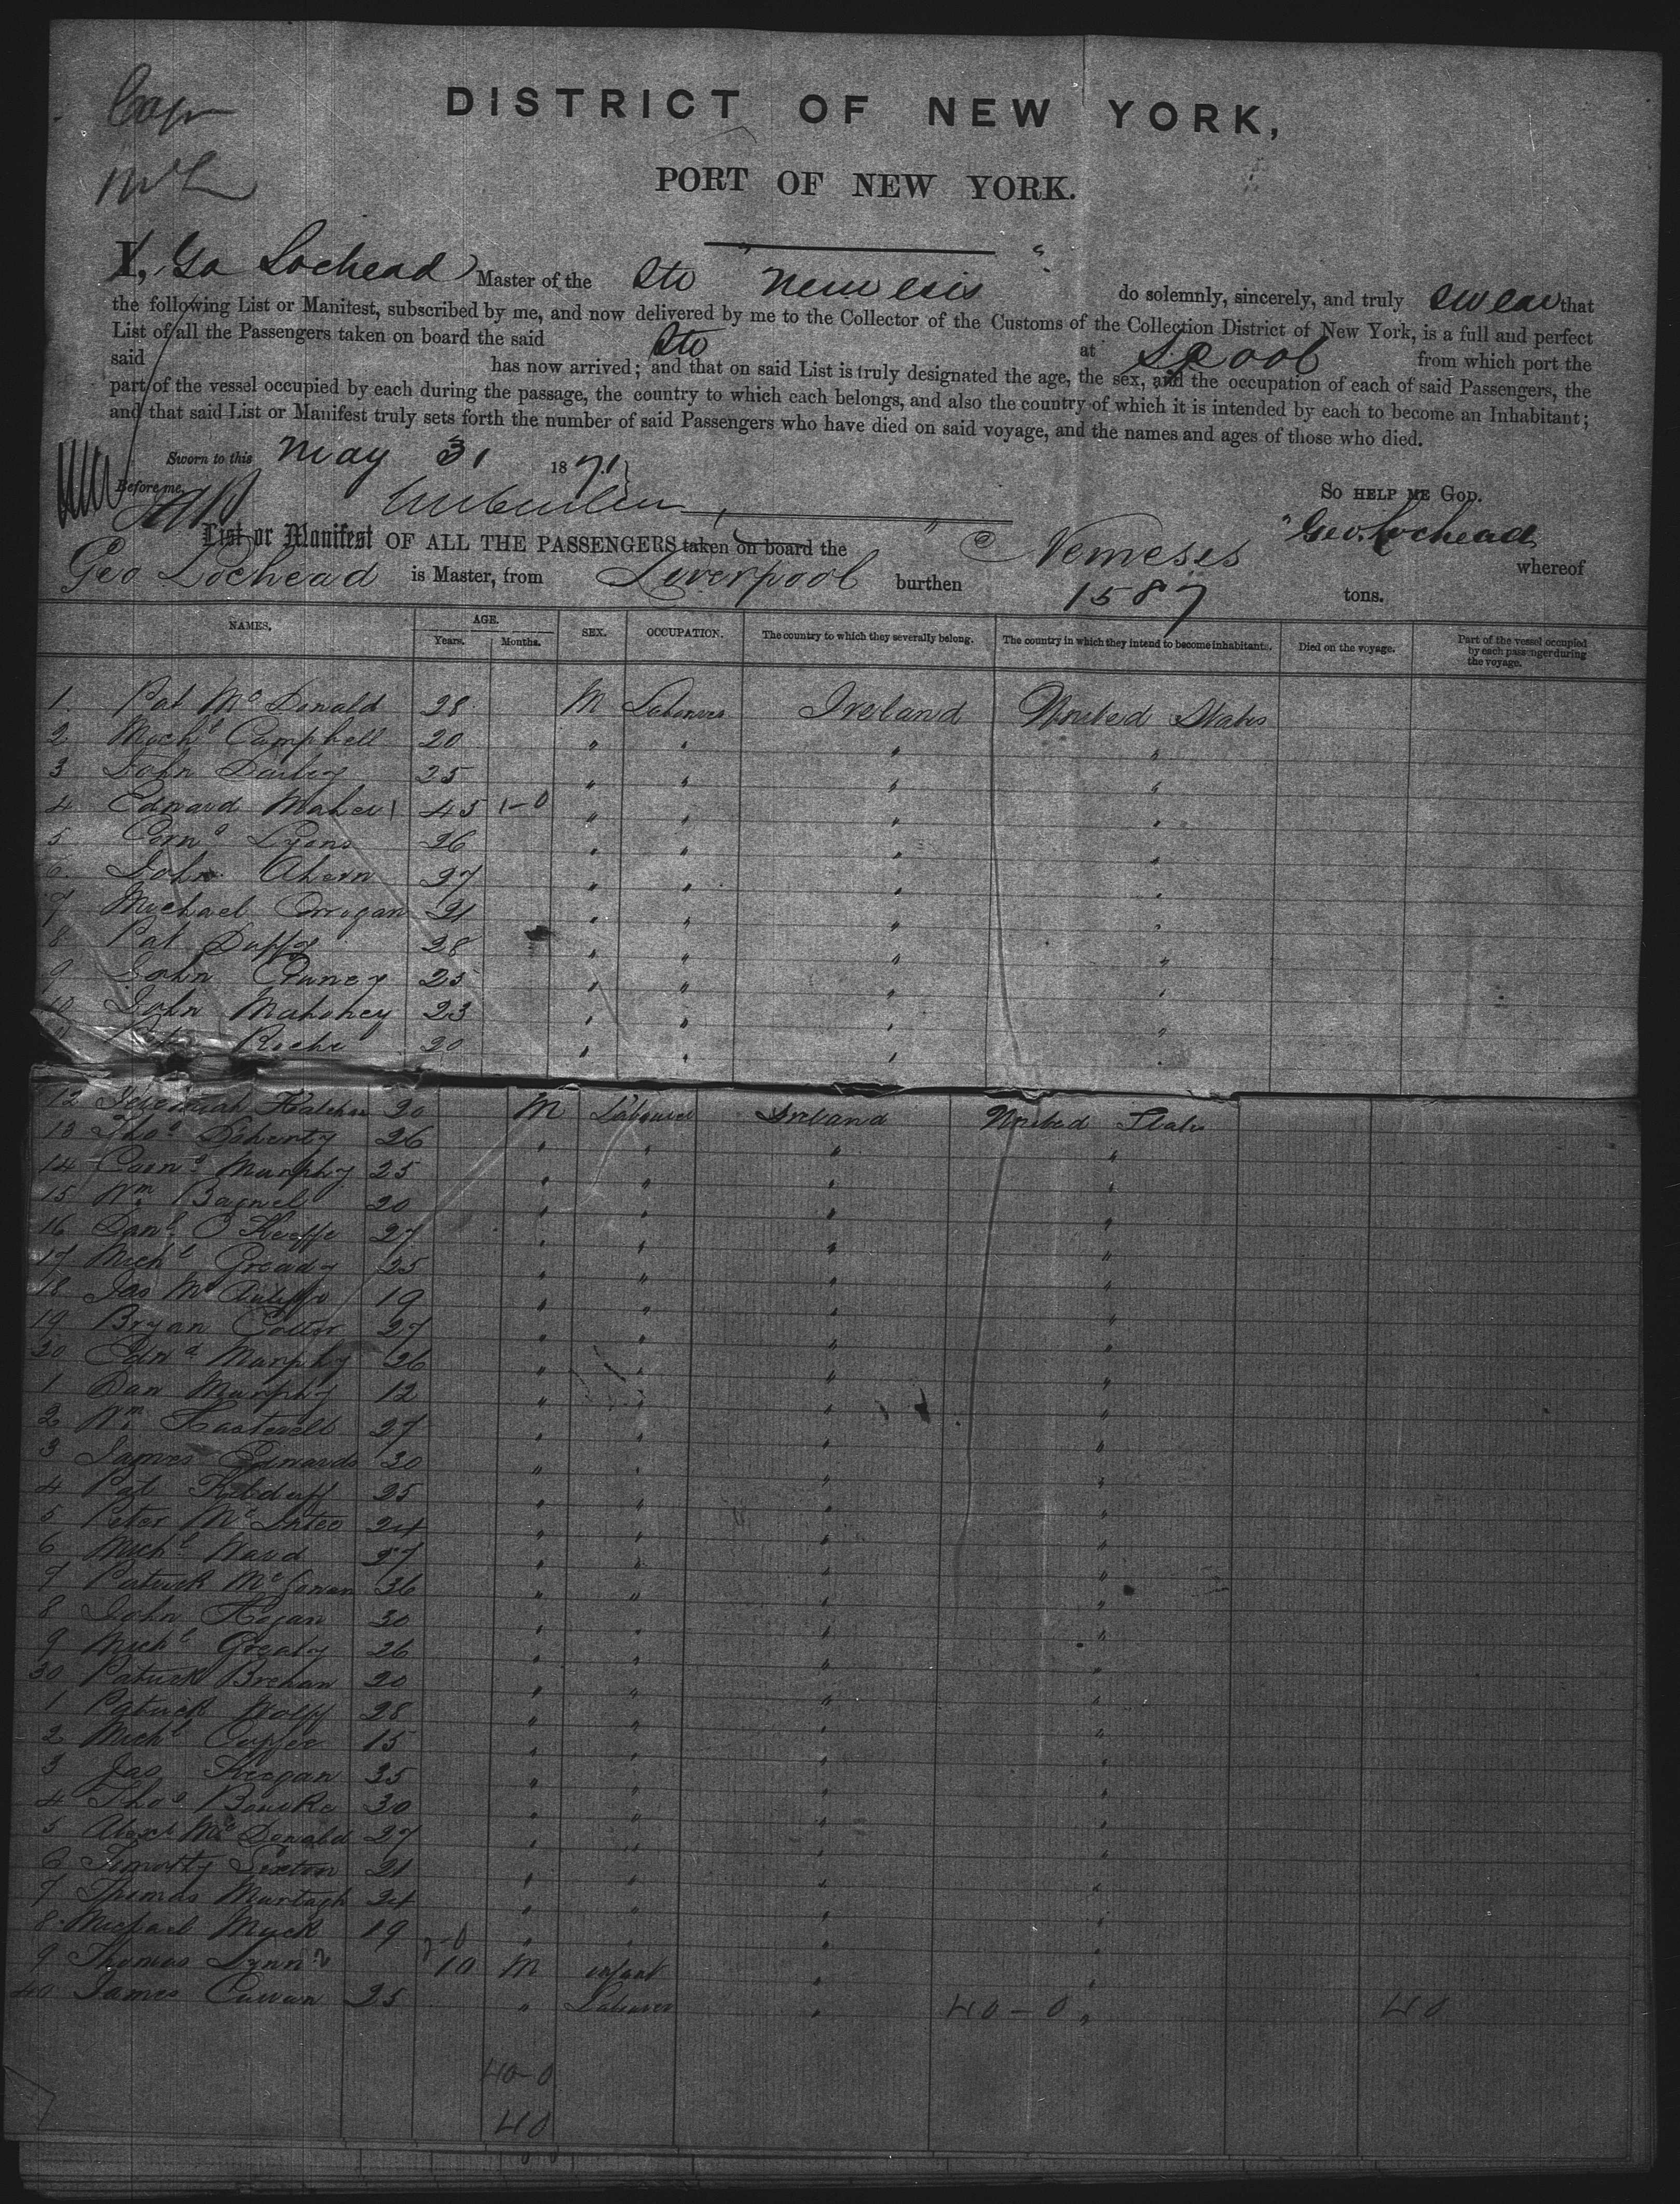 DISTRICT OF NEW YORK,
PORT OF NEW YORK.
I, Geo Lochead Master of the Str Nemesis do solemnly, sincerely, and truly swear that
the following List or Manifest, subscribed by me, and now delivered by me to the Collector of the Customs of the Collection District of New York, is a full and perfect
List of all the Passengers taken on board the said Str at L.pool from which port the
said has now arrived; and that on said List is truly designated the age, the sex, and the occupation of each of said Passengers, the
part of the vessel occupied by each during the passage, the country to which each belongs, and also the country of which it is intended by each to become an Inhabitant;
and that said List or Manifest truly sets forth the number of said Passengers who have died on said voyage, and the names and ages of those who died.
Sworn to this May 31 1871
So HELP ME GOD.
Before me,
Geo. Lochead
List or Manifest OF ALL THE PASSENGERS taken on board the Nemesis whereof
Geo Lochead is Master, from Liverpool burthen 1587 tons.
NAMES. AGE. Years. Months. SEX. OCCUPATION. The country to which they severally belong. The country in which they intend to become inhabitants. Died on the voyage. Part of the vessel occupied by each passenger during the voyage.
1. Pat McDonald 28 M Labourer Ireland United States
2 Michl Campbell 20 " " " "
3 John Dailey 25 " " " "
4 Edward Maher 45 1-0 " " " "
5 Corns Lyons 26 " " " "
6 John Ahern 27 " " " "
7 Michael Corrigan 21 " " " "
8 Pat Duffy 28 " " " "
9 John 25 " " " "
10 John Mahoney 23 " " " "
Roche 20 " " " "
12 Jeremiah 20 M Labourer Ireland United States
13 Thos Doherty 26 " " " "
14 Corns Murphy 25 " " " "
15 Wm Bagnell 20 " " " "
16 Danl O'Keeffe 27 " " " "
17 Michl Gready 25 " " " "
18 Jas McAuliffe 19 " " " "
19 Bryan Cotter 27 " " " "
20 Edwd Murphy 26 " " " "
1 Dan Murphy 12 " " " "
2 Wm 27 " " " "
3 James Edwards 30 " " " "
4 Pat Kilduff 25 " " " "
5 Peter McEntee 24 " " " "
6 Michl Ward 27 " " " "
7 Patrick McGowan 36 " " " "
8 John Hogan 30 " " " "
9 Michl Grealy 26 " " " "
30 Patrick Brehan 20 " " " "
1 Patrick Wolff 28 " " " "
2 Michl 15 " " " "
3 Jas Keegan 35 " " " "
4 Thos Bourke 30 " " " "
5 Alexr McDonald 27 " " " "
6 Timothy Sexton 21 " " " "
7 Thomas Murtagh 24 " " " "
8 Michael 19 " " " "
9 Thomas Lynn 10 M infant " "
40 James Curran 25 " Labourer " 40-0 " 40
40-0
40